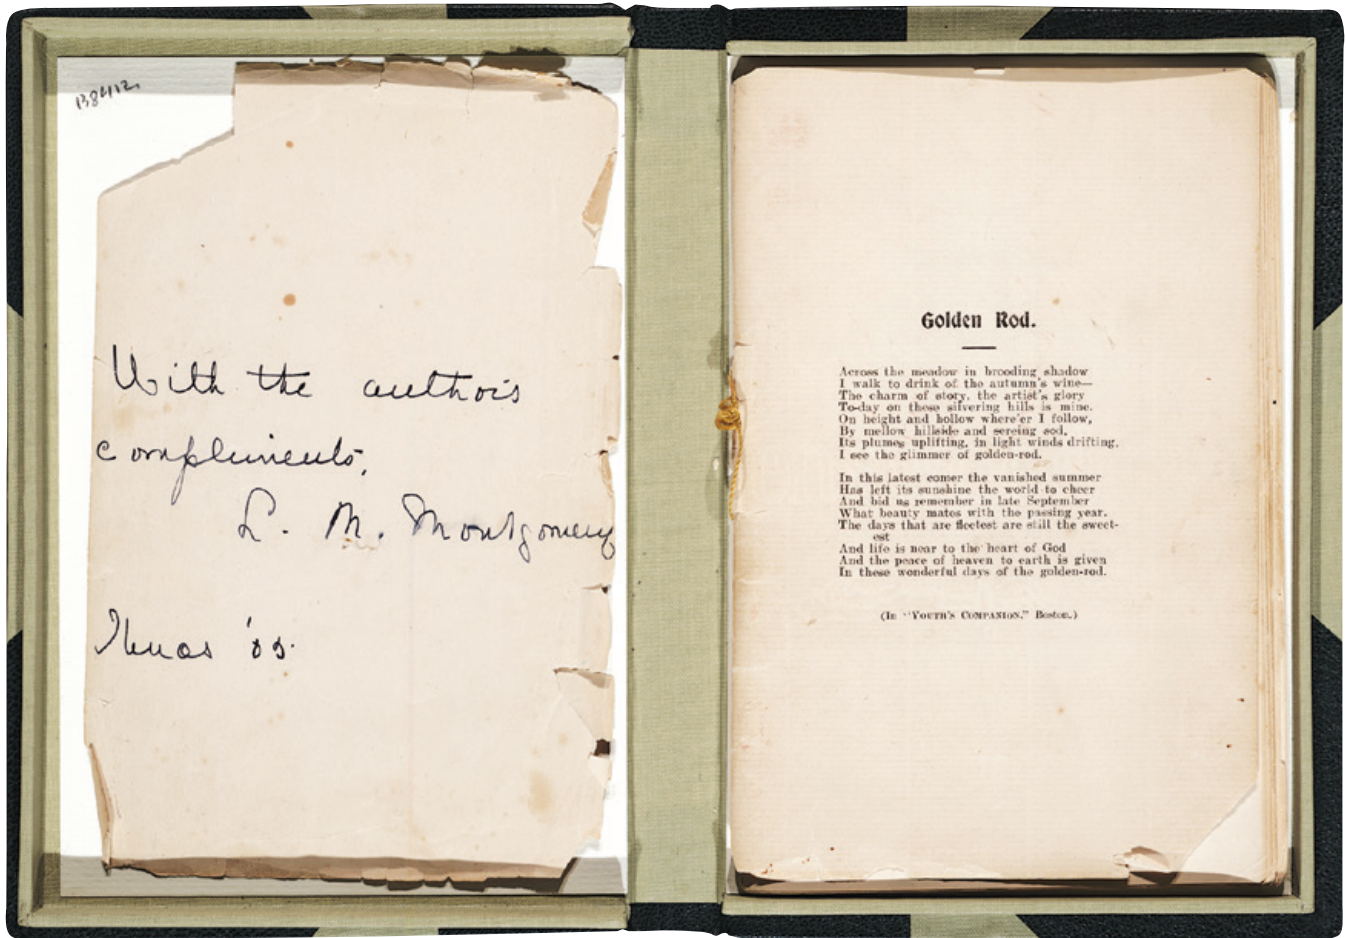 B8412.
With the author's
compliments,
L. M. Montgomery
Xmas '05.
Golden Rod.
Across the meadow in brooding shadow
I walk to drink of the autumn's wine—
The charm of story, the artist's glory
To-day on these silvering hills is mine.
On height and hollow where'er I follow,
By mellow hillside and sereing sod,
Its plumes uplifting, in light winds drifting,
I see the glimmer of golden-rod.
In this latest comer the vanished summer
Has left its sunshine the world to cheer
And bid us remember in late September
What beauty mates with the passing year.
The days that are fleetest are still the sweet-
est
And life is near to the heart of God
And the peace of heaven to earth is given
In these wonderful days of the golden-rod.
(In "YOUTH'S COMPANION," Boston.)